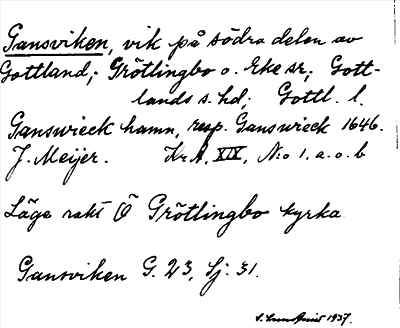 Gansviken, vik på södra delen av
Gottland; Grötlingbo o. Eke sr; Gott-
lands s. hd; Gottl. l.
Ganswieck hamn, resp. Ganswieck 1646.
J. Meijer. Kr A, XIX, N:o 1. a. o. b
Läge rakt Ö Grötlingbo kyrka.
Gansviken G. 23, Sj. 31.
S. Lundkvist 1937.